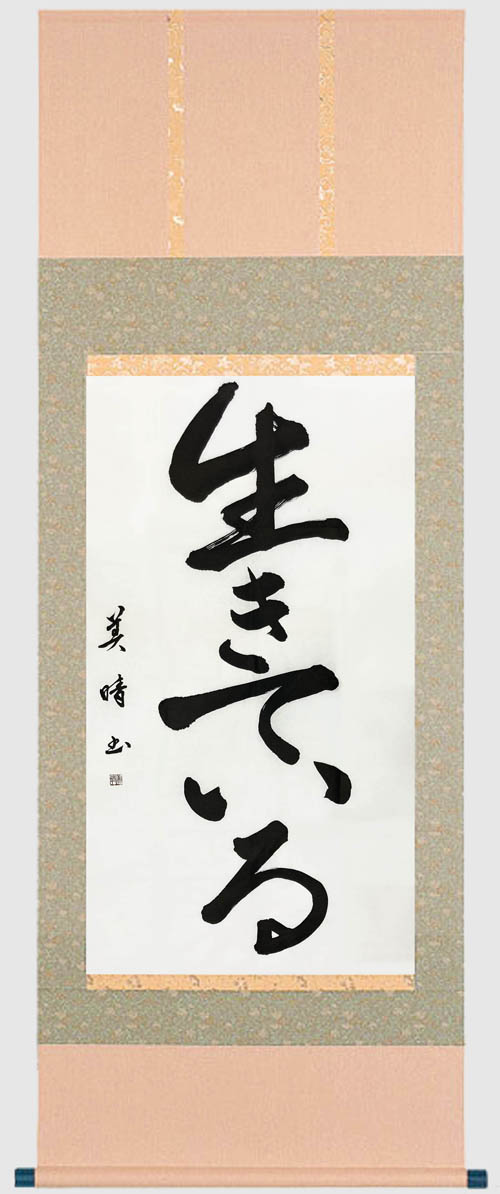 生きている
美晴書